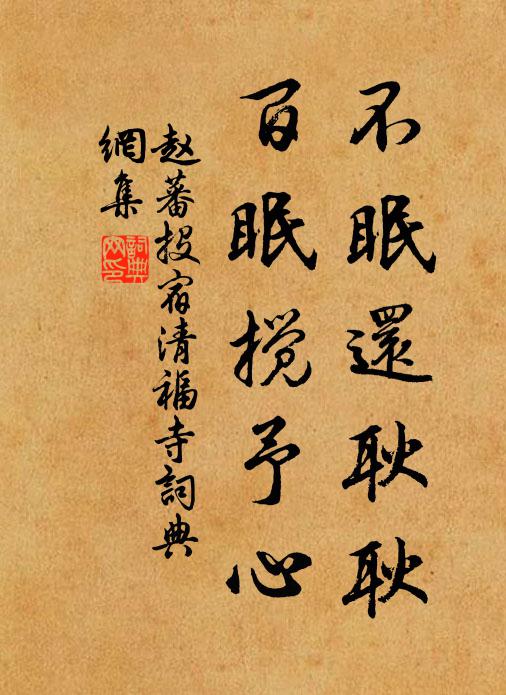 不眠還耿耿
百眠搅予心
赵蕃投宿清福寺詞典
網集
詞典
网印